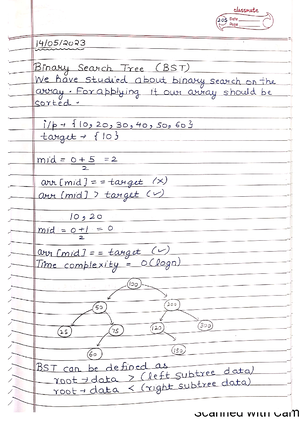 classmate
Date
Page
205
14/05/2023
Binary Search Tree (BST)
We have studied about binary search on the
array. For applying it our array should be
sorted.
i/p → {10, 20, 30, 40, 50, 60}
target → {10}
mid = 0+5 = 2
2
arr[mid] == target (x)
arr[mid] > target (✓)
10, 20
mid = 0+1 = 0
2
arr[mid] == target (✓)
Time complexity = O(logn)
100
50 200
25 75 120 300
60 150
BST can be defined as
root → data > (left subtree data)
root → data < (right subtree data)
Scanned with Cam